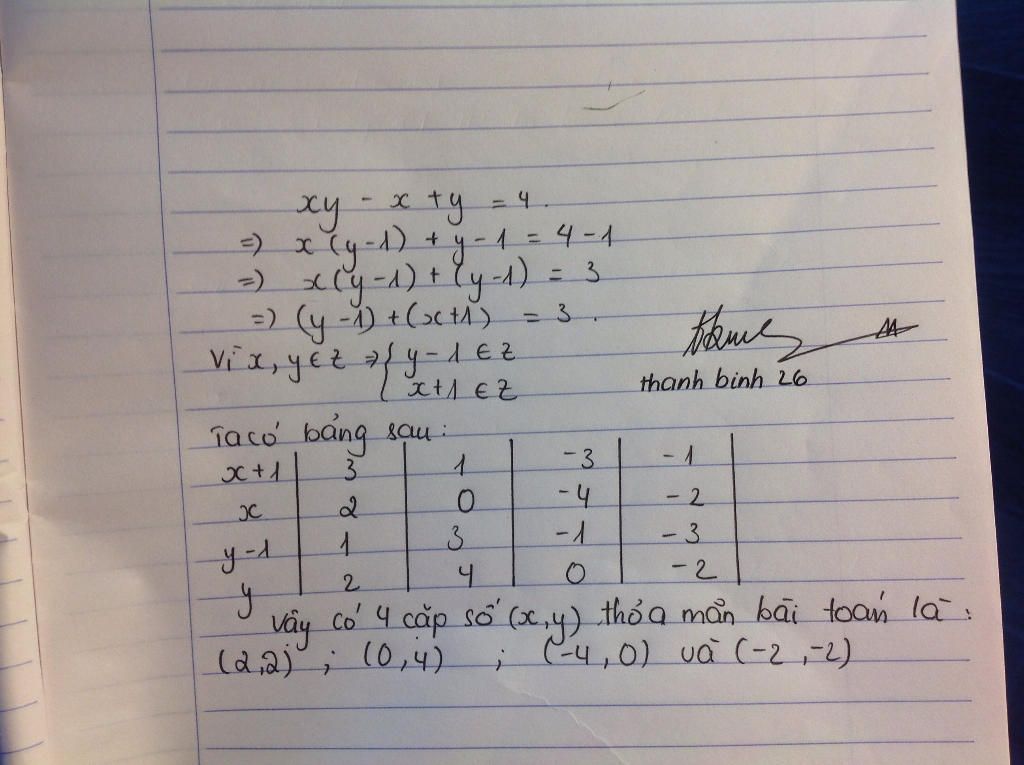 xy - x + y = 4.
=) x(y-1) + y - 1 = 4 - 1
=) x(y-1) + (y-1) = 3
=) (y-1)+(x+1) = 3.
Vì x, y ∈ Z => { y - 1 ∈ Z
x+1 ∈ Z
thanh binh 26
Ta có bảng sau:
x+1 | 3 | 1 | -3 | -1
x | 2 | 0 | -4 | -2
y-1 | 1 | 3 | -1 | -3
y | 2 | 4 | 0 | -2
vậy có 4 cặp số (x,y) thỏa mãn bài toán là:
(2,2) ; (0,4) ; (-4,0) và (-2,-2)